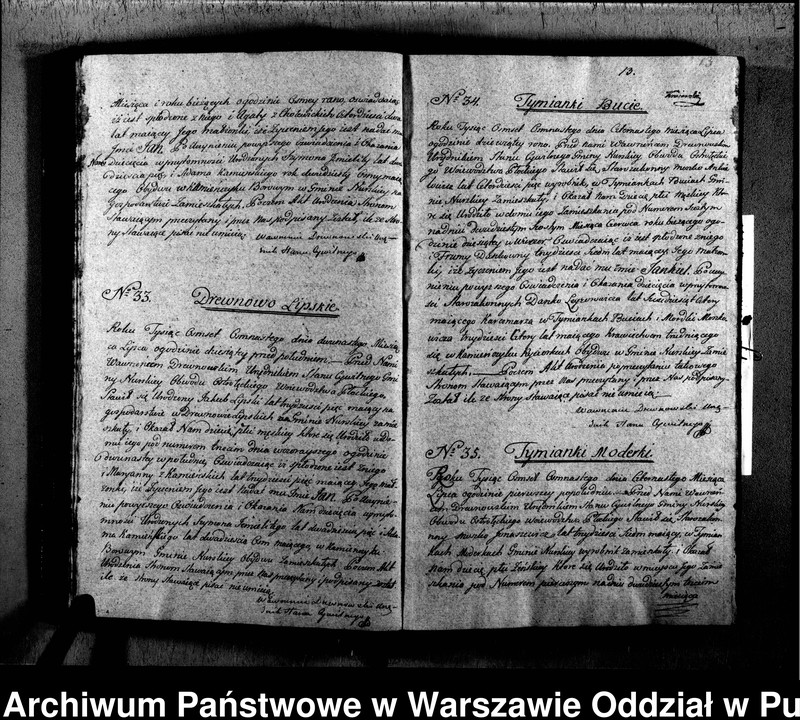 Miesiąca i roku bieżących ogodzinie osmey rano, oswiadczaiąc
iż iest spłodzone z niego i Agaty z
lat maiący Jego małżonki iż życzeniem jego iest nadać mu
Imie Jan. Po uczynieniu powyższego oswiadczenia i Okazania
Nam dziecięcia wprzytomności Urodzonych Szymona lat
pięć i Adama Kaminskiego rok dwudziesty
cego Obydwu w Kamienczyku Borowym w Gminie Nurskiey na
Gospodarstwie Zamieszkałych. Poczem Akt Urodzenia Stronom
Stawaiącym przeczytany i przez Nas podpisany Został, ile że Stro-
ny Stawaiące pisać nie umieią
Wawrzeniec Drewnowski Urz-
dnik Stanu Cywilnego
No. 33. Drewnowo Lipskie.
Roku Tysiąc Ośmset Ośmnastego dnia dwunastego Miesią-
ca Lipca ogodzinie dziesiąty przed południem Przed Nami
Wawrzeńcem Drewnowskim Urzędnikiem Stanu Cywilnego Gmi-
ny Nurskiey Obwodu Ostrołęckiego Województwa Płockiego
Stawił się Urodzony Jakub Lipski lat trzydzieści pięć maiący na
gospodarstwie w Drewnowie Lipskich w Gminie Nurskiey zamie-
szkały, i Okazał Nam dziecie płci męskiey które się Urodziło w do-
mu iego pod numerem trzecim dnia wczorayszego ogodzinie
dwunasty wpołudnie, Oswiadczaiąc iż spłodzone iest z niego
i Maryanny z Kaminskich lat trzydzieści pięć maiącey Jego mał-
żonki, iż życzeniem Jego iest Nadać mu Imie Jan. Po uczynie-
niu powyższego Oswiadczenia i Okazania Nam dziecięcia wprzyto-
mności Urodzonych Szymona lat dwadzieścia pięć i Ada-
ma Kaminskiego lat dwadzieścia Ośm maiącego, w Kamienczyku
Borowym Gminie Nurskiey Obydwu Zamieszkałych. Poczem Akt
Urodzenia Stronom Stawaiącym przez Nas przeczytany i podpisany został
ile że strony Stawaiące pisać nie umieią
Wawrzeniec Drewnowski Urz-
dnik Stanu Cywilnego
13.
13
No. 34. Tymianki Bucie.
Roku Tysiąc Ośmset Ośmnastego dnia Czternastego miesiąca Lipca
ogodzinie dziewiąty rano. Przed nami Wawrzeńcem Drewnowskim
Urzędnikiem Stanu Cywilnego Gminy Nurskiey Obwodu Ostrołęckie-
go Województwa Płockiego Stawił się Starozakonny
lat Czterdzieści pięć wyrobnik, w Tymiankach Buciach Gmi-
nie Nurskiey Zamieszkały, i Okazał Nam Dziecie płci męskiey Któ-
re się Urodziło w domu iego Zamieszkania pod Numerem Szóstym
na dniu Dwudziestym Szóstym Miesiąca Czerwca roku bieżącego ogo-
dzinie dziesiąty w Wieczor Oswiadczaiąc iż iest spłodzone z niego
i Frumy trzydzieści Siedm lat maiący Jego małżon-
ki, iż życzeniem Jego iest nadać mu Imie Jankiel. Po uczy-
nieniu powyższego Oswiadczenia i Okazania dziecięcia wprzytomno-
ści Starozakonnych lat Sześćdziesiąt Cztery
maiącego Karczmarza w Tymiankach Buciach i Mordki Moszko-
wicza trzydzieści Cztery lat maiącego Krawiectwem trudniącego
się w Kamienczyku Obydwu w Gminie Nurskiey Zamie-
szkałych. Poczem Akt Urodzenia po przeczytaniu takowego
Stronom Stawaiącym przez Nas przeczytany i przez Nas podpisany
Został ile że Strony Stawaiące pisać nie umieią.
Wawrzeniec Drewnowski Urz-
dnik Stanu Cywilnego
No. 35. Tymianki Moderki.
Roku Tysiąc Ośmset Ośmnastego dnia Czternastego Miesiąca
Lipca ogodzinie pierwszey popołudniu. Przed Nami Wawrzeń-
cem Drewnowskim Urzędnikiem Stanu Cywilnego Gminy Nurskiey
Obwodu Ostrołęckiego Województwa Płockiego Stawił się Starozakon-
ny Moszko lat trzydzieści Siedm maiący, w Tymian-
kach Moderkach Gminie Nurskiey wyrobnik zamieszkały, i Okazał
Nam dziecię płci Żeńskiey które się Urodziło w mieyscu Jego Zamie-
szkania pod Numerem pierwszym na dniu dwudziestym trzecim
miesiąca
Archiwum Państwowe w Warszawie Oddział w Pu